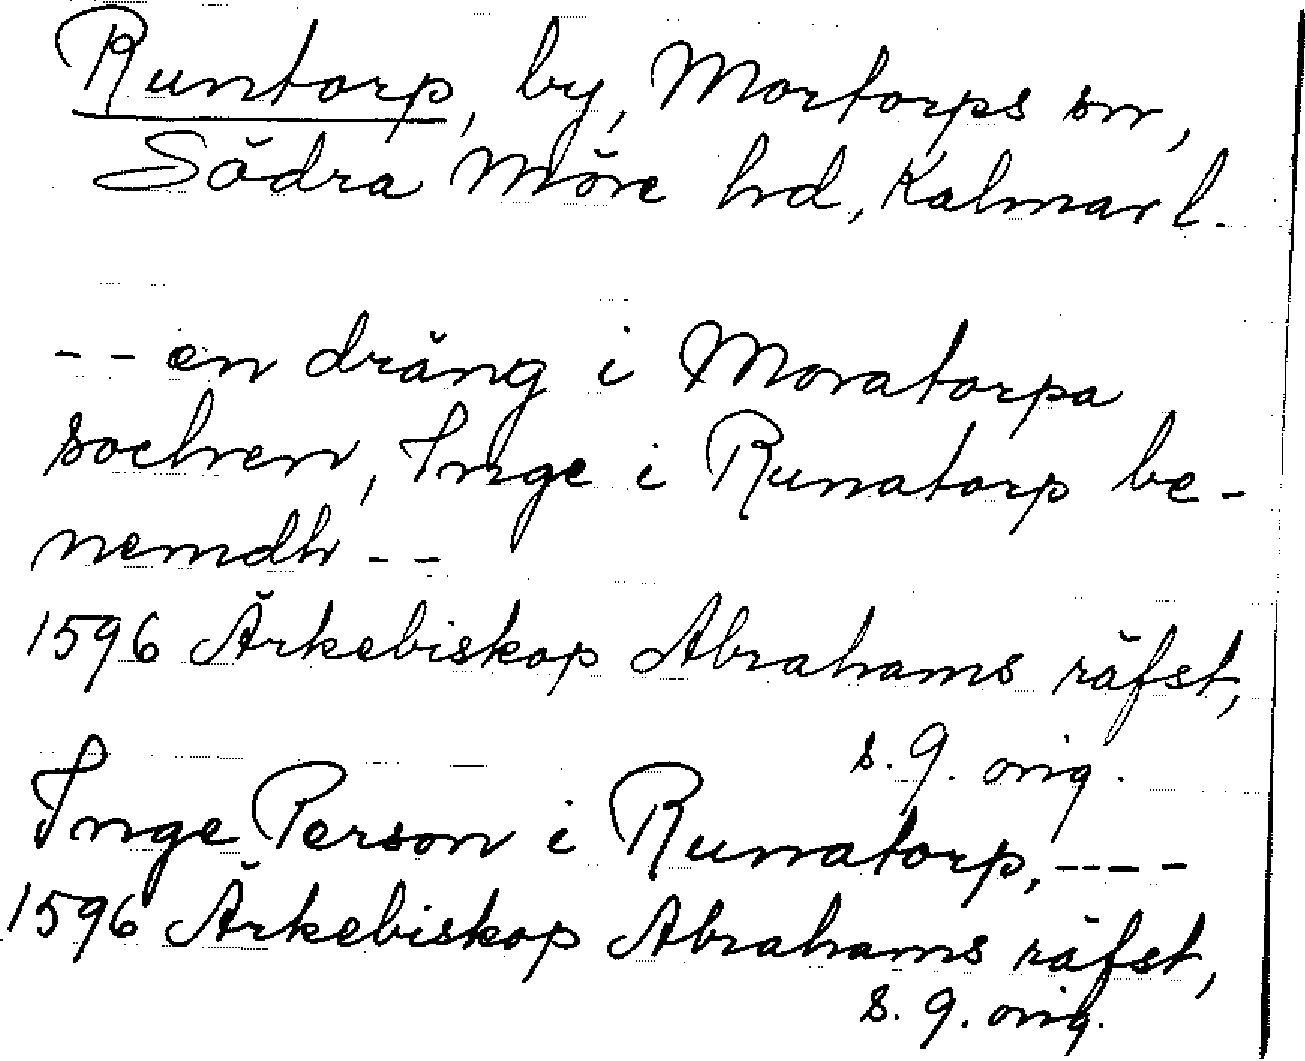 Runtorp, by, Mortorps sn,
Södra Möre hd, Kalmar l.
-- en dräng i Moratorpa
sochnen, Inge i Runatorp be-
nemdh --
1596 Ärkebiskop Abrahams räfst,
s. 9. orig.
Inge Person i Runatorp, ----
1596 Ärkebiskop Abrahams räfst,
s. 9. orig.